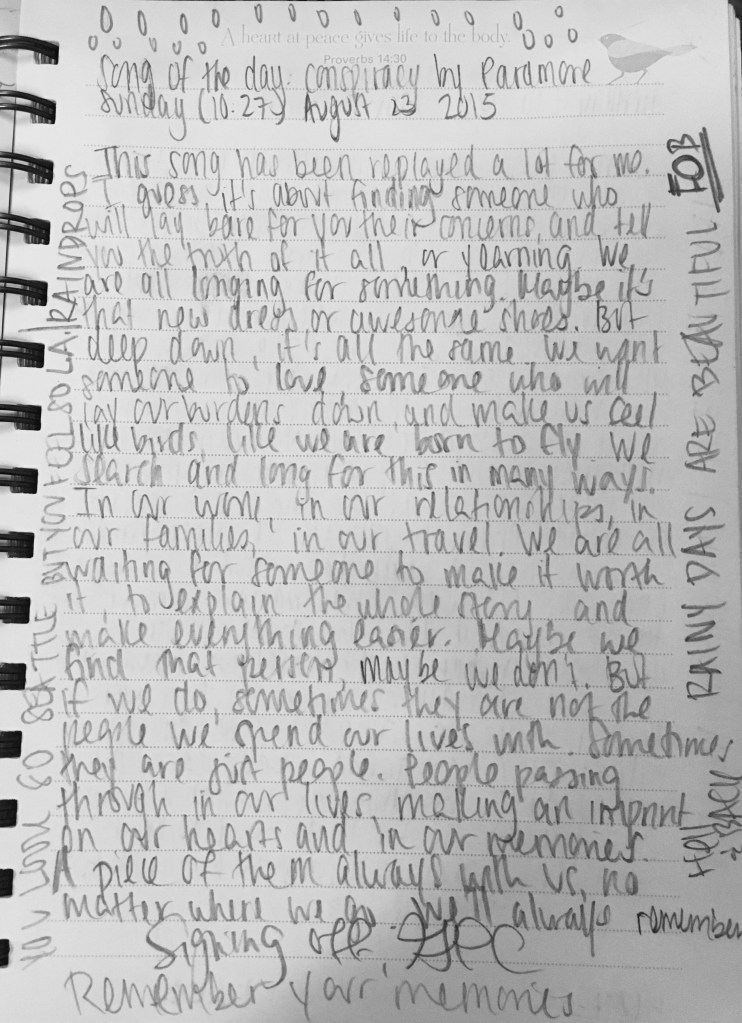 A heart at peace gives life to the body.
Proverbs 14:30
Song of the day: conspiracy by Paramore
Sunday (10:27) August 23 2015
This song has been replayed a lot for me.
I guess, it's about finding someone who
will lay bare for you their concerns, and tell
you the truth of it all or yearning. We
are all longing for something. Maybe it's
that new dress, or awesome shoes. But
deep down, it's all the same. We want
someone to love, someone who will
lay our burdens down, and make us feel
like birds, like we are born to fly. We
search and long for this in many ways.
In our work, in our relationships, in
our families, in our travel. We are all
waiting for someone to make it worth
it, to explain the whole story and
make everything easier. Maybe we
find that person, maybe we don't. But
if we do, sometimes they are not the
people we spend our lives with. Sometimes
they are just people. People passing
through in our lives, making an imprint
on our hearts and in our memories.
A piece of them always with us, no
matter where we go. We'll always remember
Signing off,
Remember your memories
YOU LOOK SO SEATTLE BUT YOU FEEL SO L.A. | RAINDROPS
RAINY DAYS ARE BEAUTIFUL FOB
Hell & BACK